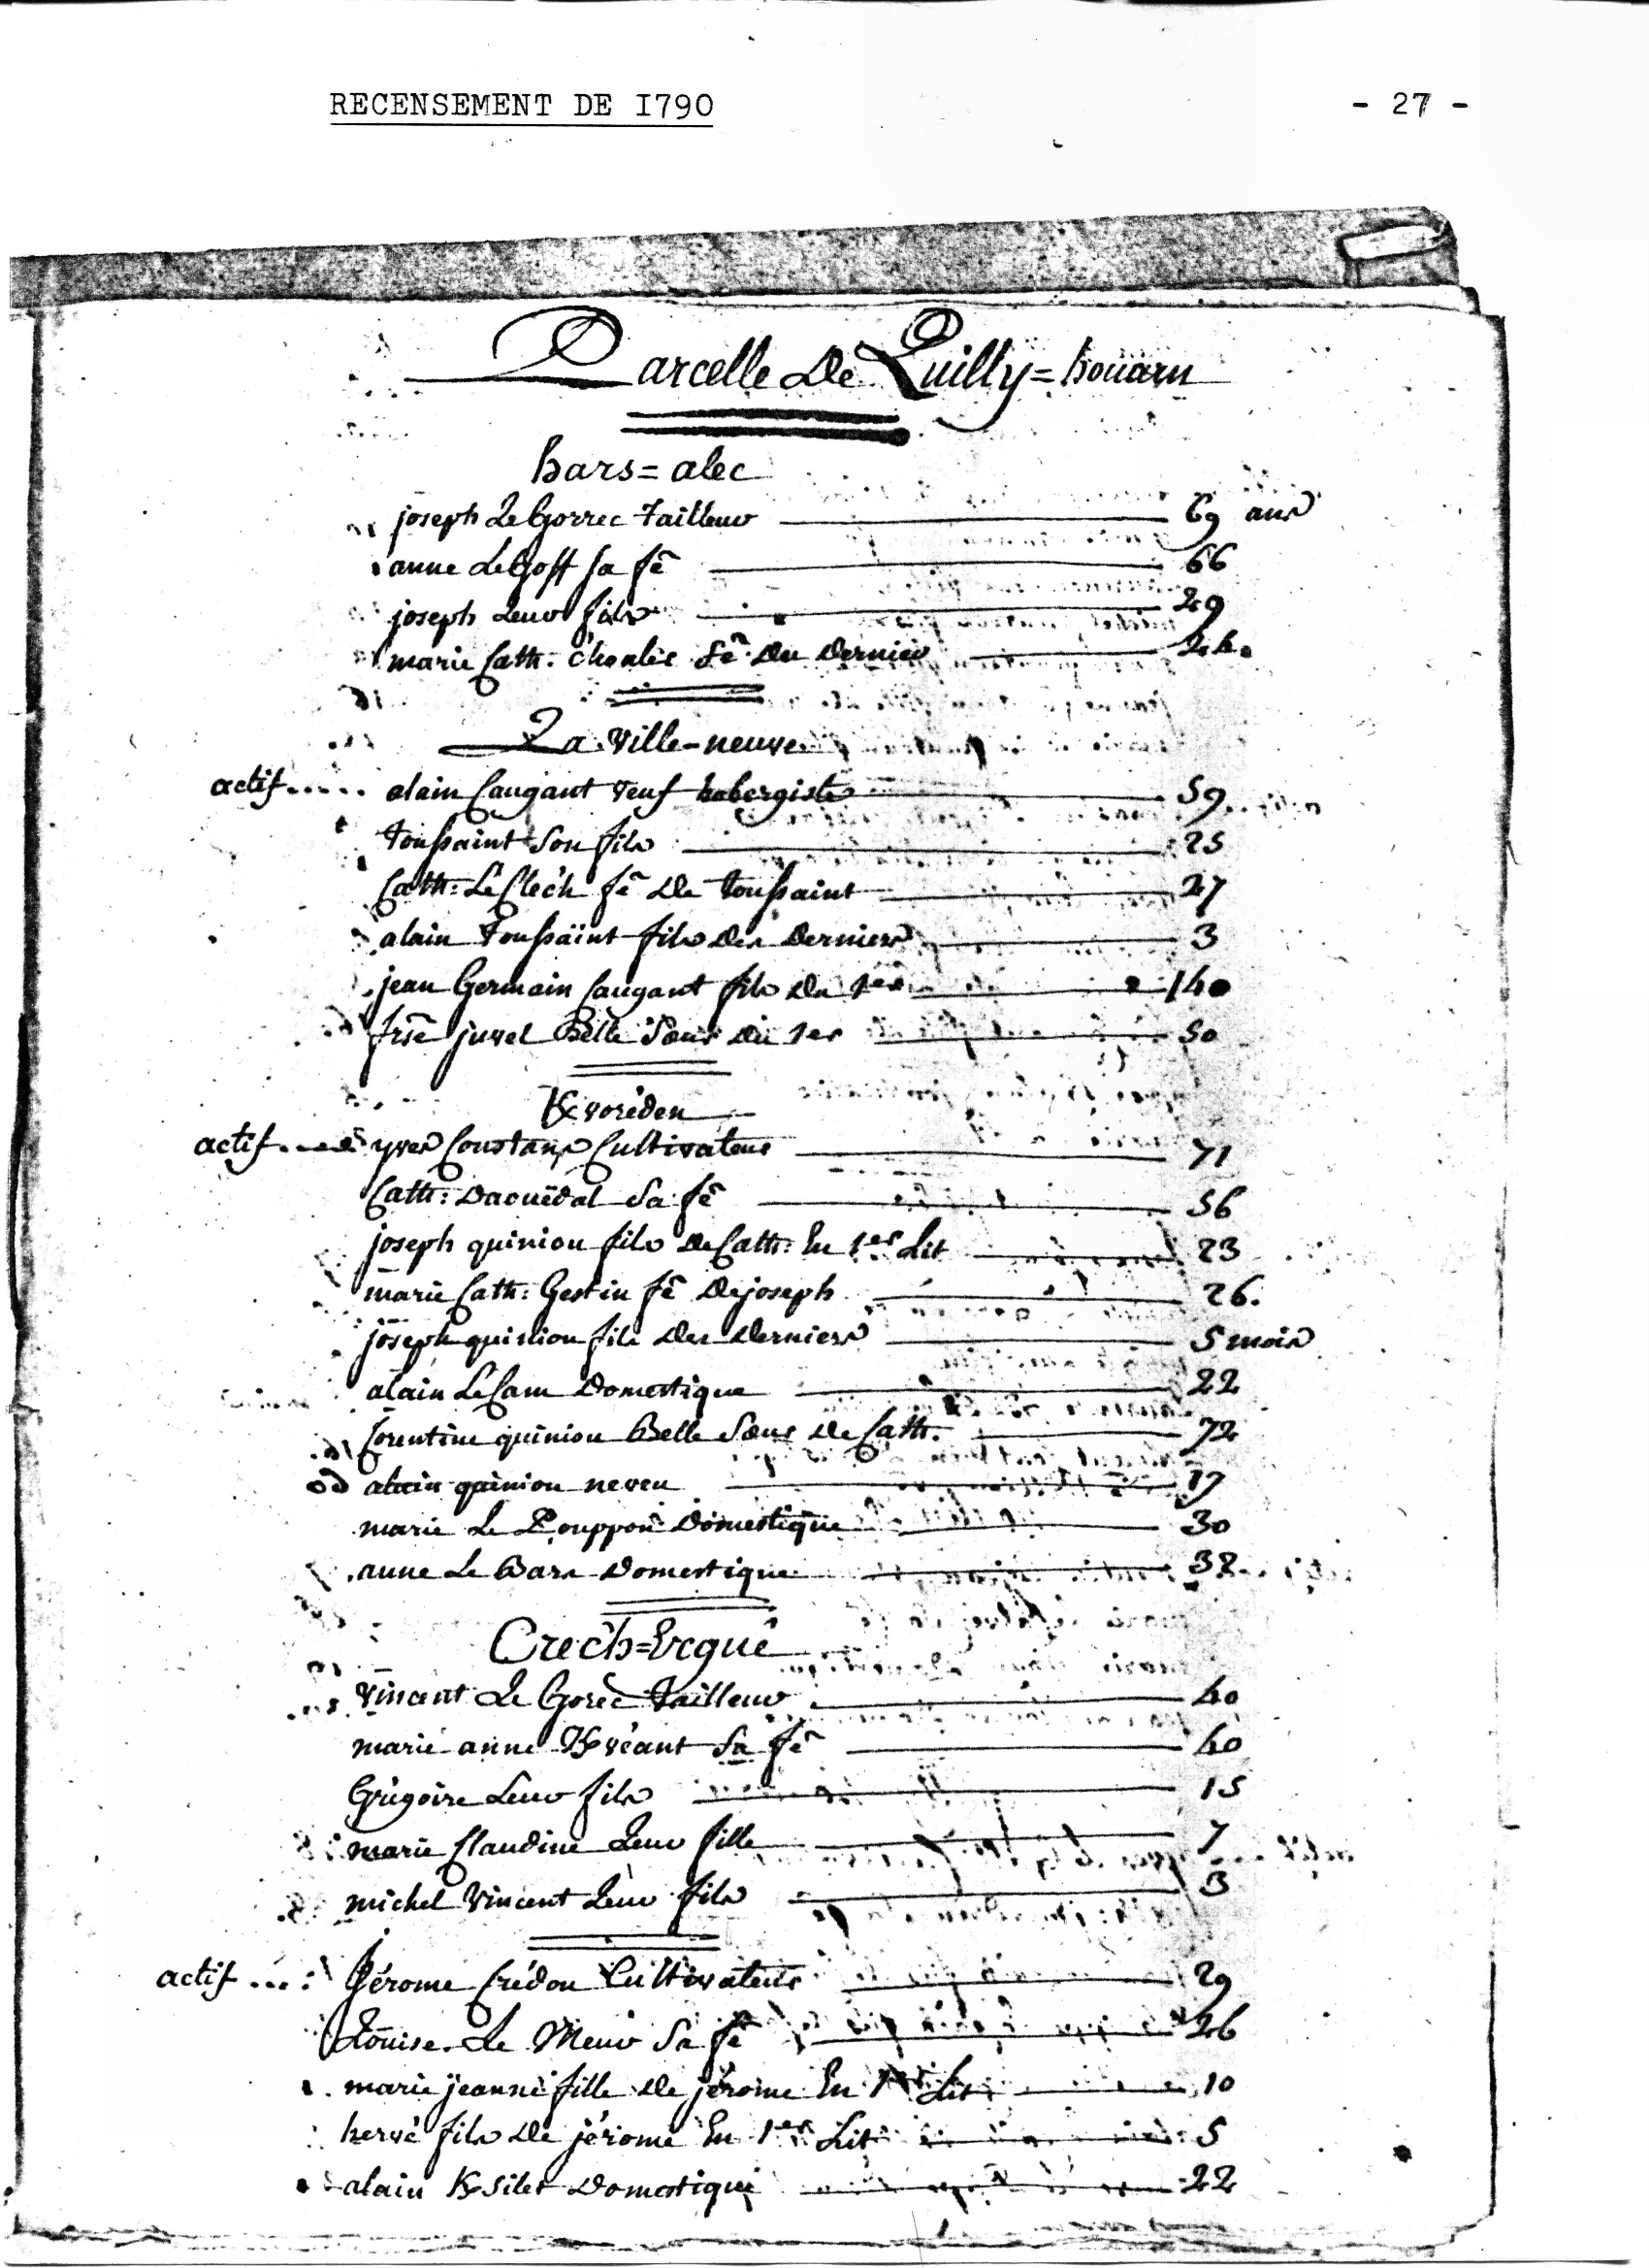 RECENSEMENT DE I790 - 27 -
Parcelle De Quilly=houarn
hars=alec
joseph Le Gorrec tailleur 69 ans
anne Le Goff sa fê 66
joseph Leur fils 29
marie Cath: fê Du Dernier 24.
La ville-neuve
actif..... alain Caugant veuf hebergiste 59
toussaint Son fils 25
Cath: Le Clec'h fê De toussaint 27
alain Toussaint fils Des Derniers 3
jean Germain Caugant fils Du 1er 14
frse juvel Belle Soeur Du 1er 50
K/voréden
actif..... yves Coustans Cultivateur 71
Cath: Daouëdal Sa fê 56
joseph quiniou fils De Cath: En 1er Lit 23
marie Cath: Gestin fê De joseph 26.
joseph quiniou fils Des Derniers 5 mois
alain Le Cam Domestique 22
Corentine quiniou Belle Soeur De Cath. 72
alain quiniou neveu 17
marie Le Pouppon Domestique 30
anne Le Bars Domestique 32
Crec'h=Ergué
Vincent Le Gorec tailleur 40
marie anne K/véant Sa fê 40
Grégoire Leur fils 15
marie Claudine Leur fille 7
michel Vincent Leur fils 3
actif ...: Jérome Crédou Cultivateur 29
Louise Le Meur Sa fê 26
marie jeanne fille De jérome En 1er Lit 10
hervé fils De jérome En 1er Lit 5
alain K/silet Domestique 22